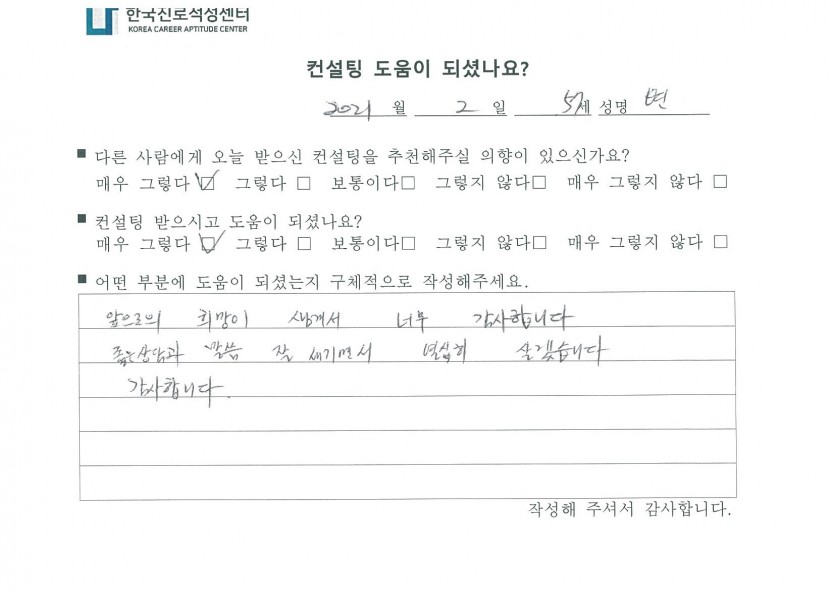 한국진로적성센터
KOREA CAREER APTITUDE CENTER
컨설팅 도움이 되셨나요?
2021 월 2 일 57세 성명 변
■ 다른 사람에게 오늘 받으신 컨설팅을 추천해주실 의향이 있으신가요?
매우 그렇다 ☑ 그렇다 □ 보통이다□ 그렇지 않다□ 매우 그렇지 않다 □
■ 컨설팅 받으시고 도움이 되셨나요?
매우 그렇다 ☑ 그렇다 □ 보통이다□ 그렇지 않다□ 매우 그렇지 않다 □
■ 어떤 부분에 도움이 되셨는지 구체적으로 작성해주세요.
앞으로의 희망이 생겨서 너무 감사합니다
좋은상담과 말씀 잘 새기면서 열심히 살겠습니다
감사합니다.
작성해 주셔서 감사합니다.